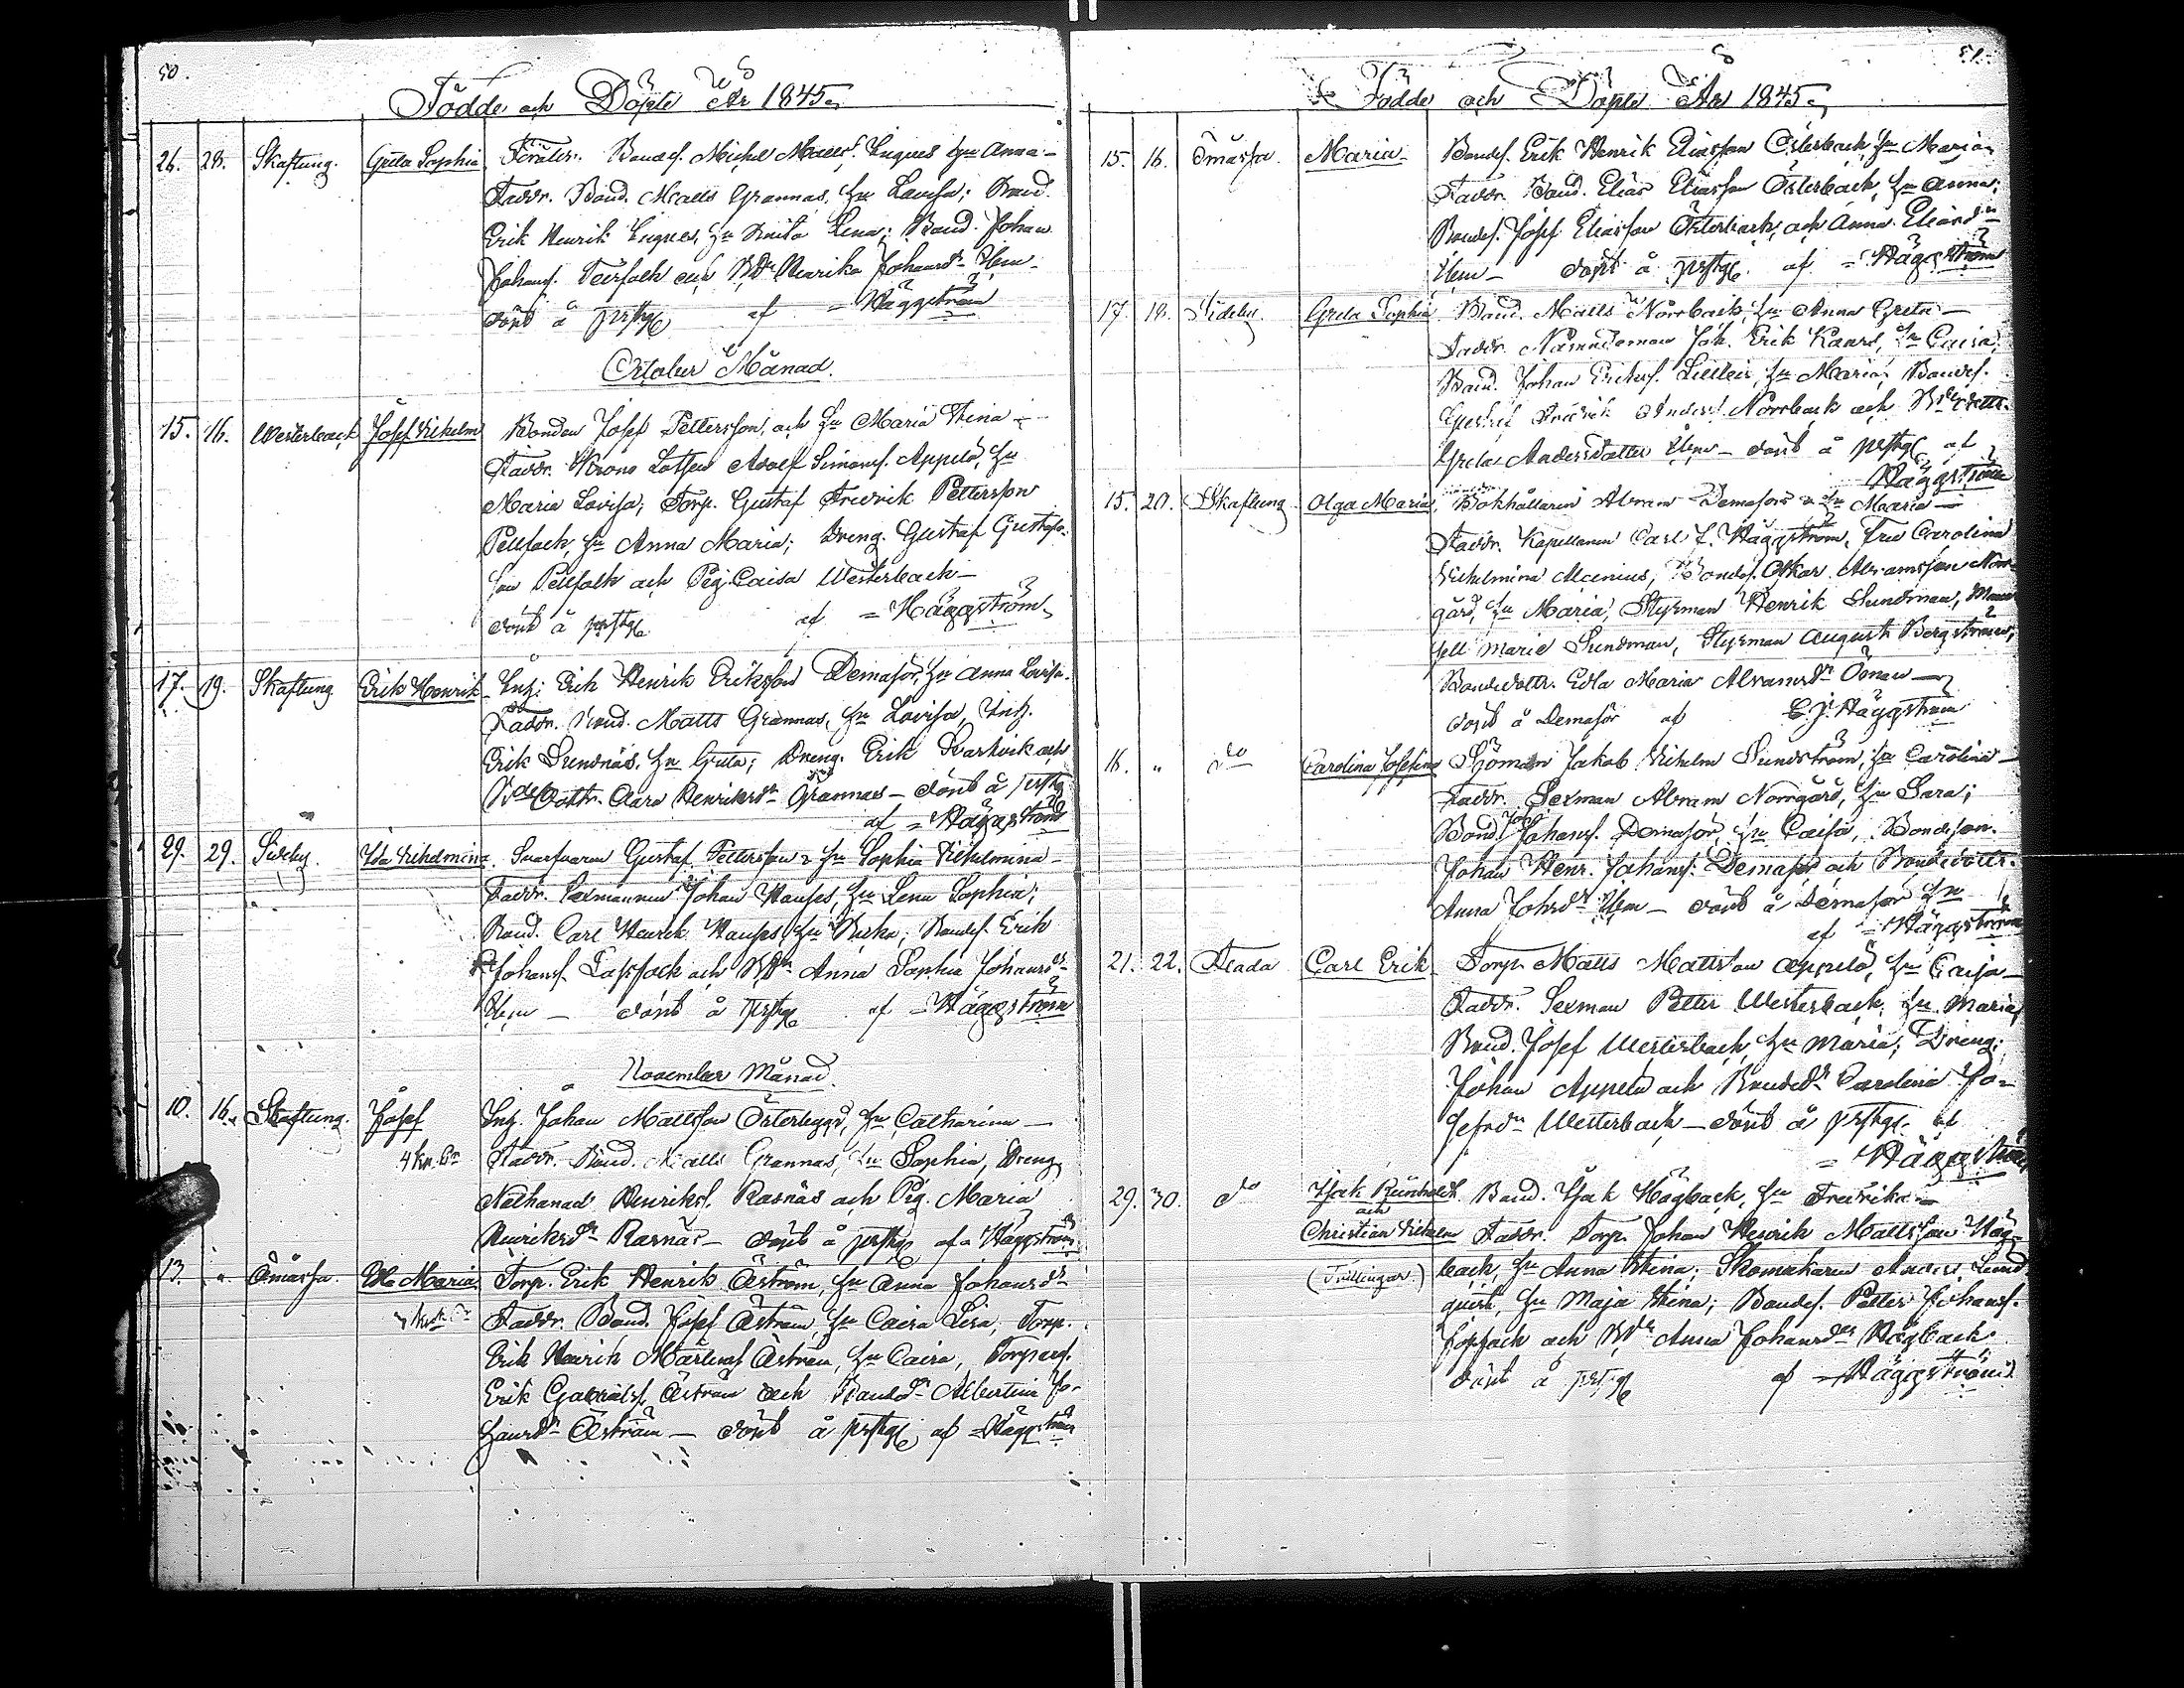 50.
Födde och Döpte År 1845.
26. 28. Skaftung. Greta Sophia Föräldr. Bondes. Michel Matts. Ingves hu Anna-
Faddr. Bond. Matts Grannas, hu Lovisa; Bond.
Erik Henrik Ingves, hu Anita Lena; Bond. Johan
Johans. och Henrika Johansdr Ibm-
döpt å prstg af = Häggström
October Månad.
15. 16. Westerback Josef Vilhelm Bonden Josef Pettersson, och hu Maria Stina-
Faddr. Krono Lotsen Adolf Simons. Appelö, hu
Maria Lovisa; Torp. Gustaf Fredrik Pettersson
Pellfack, hu Anna Maria; Dreng. Gustaf Gustafs-
son Pellfolk och Pig. Caisa Westerback-
döpt å prstg af = Häggström
17. 19. Skaftung Erik Henrik Inh: Erik Henrik Eriksson Demasör, hu Anna Lovisa.
Faddr. Bond. Matts Grannas, hu Lovisa, Inh.
Erik Sundnäs, hu Greta; Dreng. Erik och
Bdedottr. Clara Henriksdr Grannas- döpt å prstg
af = Häggström
29. 29. Sideby. Ida Vilhelmina Gustaf Pettersson & hu Sophia Vilhelmina-
Faddr. Sexmannen Johan Hanses, hu Lena Sophia;
Bond. Carl Henrik Hanses, hu Bondes. Erik
Johans. Lassfack och Anna Sophia Johansdr
Ibm - döpt å prstg af = Häggström
November Månad.
10. 16. Skaftung. Josef Inh. Johan Mattsson Österbyggd, hu Catharina-
Faddr. Bond. Matts Grannas, hu Sophia, Dreng
Nathanael Henriks. Rasnäs och Pig. Maria
Henriksdr Rasnäs- döpt å prstg af = Häggström
13. " Ömossa. Ida Maria Torp. Erik Henrik Åström, hu Anna Johansdr
Faddr. Bond. Josef Åström, hu Caisa Lisa, Torp.
Erik Henrik Mårtens. Åström, hu Caisa, Torpares.
Erik Gabriels. Åström och Albertina Jo-
hansdr Åström - döpt å prstg af = Häggström
51.
Födde och Döpte År 1845.
15. 16. Ömossa. Maria Bondes. Erik Henrik Eliasson Österback, hu Maria-
Faddr. Bond. Elias Eliasson Österback, hu Anna;
Bondes. Josef Eliasson Österback, och Anna Eliasdr
Ibm- döpt å prstg af = Häggström
17. 18. Sideby. Greta Sophia Bond. Matts Norrback, hu Anna Greta-
Faddr. Nämndeman Joh. Erik hu Caisa,
Bond. Johan Ericks. hu Maria, Bondes.
Fredrik Anders. Norrback och
Greta Andersdotter Ibm- döpt å prstg af
Häggström
15. 20. Skaftung Olga Maria Bokhållaren Abram Demasör & hu Maria-
Faddr. Kapellanen Carl J. Häggström, Fru Carolina
Vilhelmina Alcenius, Bondes. Oskar Abramsson Norr-
gård, hu Maria, Styrman Henrik Sundman, Mam-
sell Maria Sundman, Styrman August Bergström,
Bondedottr. Edla Maria Abramsdr Öman-
döpt å Demasör af C J. Häggström
16. " do Carolina Josefina Sjöman Jakob Vilhelm Sundström, hu Carolina-
Faddr. Sexman Abram Norrgård, hu Sara;
Bond. Johans. Demasör, hu Caisa, Bondeson.
Johan Henr. Johans. Demasör och Bondedottr.
Anna Johsdr Ibm- döpt å Demasör
af = Häggström
21. 22. Flada Carl Erik Torp. Matts Mattsson Appelö, hu Caisa-
Faddr. Sexman Petter Westerback, hu Maria,
Bond. Josef Westerback, hu Maria; Dreng.
Johan Appelö och Carolina Jo-
sefsdr Westerback - döpt å prstg. af
= Häggström
29. 30. do Isak Reinholdt Bond. Isak Högback, hu Fredrika-
och
Christian Vilhelm Faddr. Torp. Johan Henrik Mattsson Hög-
(Tvillingar) back, hu Anna Stina; Skomakaren Anders Lund
quist, hu Maja Stina; Bondes. Petter Johans.
och Anna Johansdr Högback
döpt å prstg af = Häggström